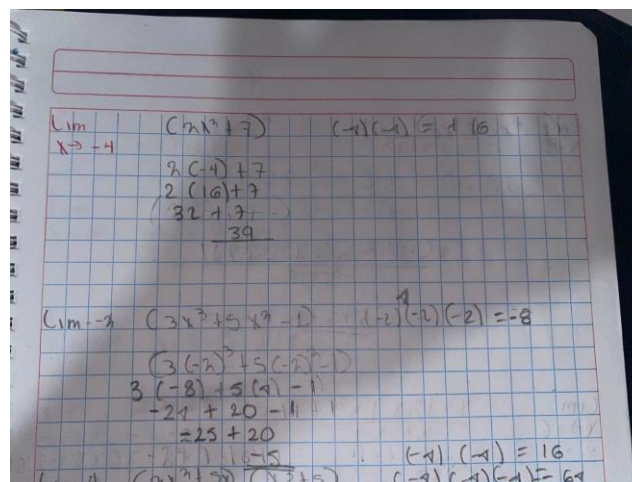 Lim (2x² + 7) (-4)(-4) = + 16
x→ -4
2(-4) + 7
2 (16) + 7
32 + 7
39
Lim -2 (3x³ + 5x² - 1) (-2)(-2)(-2) = -8
(3(-2)³ + 5(-2)² - 1)
3 (-8) + 5(4) - 1
-24 + 20 - 1
= 25 + 20
-15
(-4) (-4) = 16
(-4) (-4)(-4) = 64